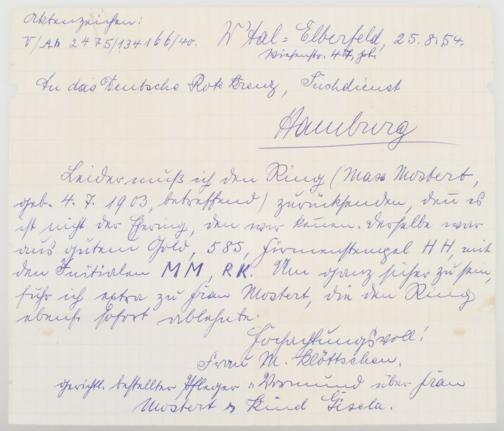 Aktenzeichen:
V/Ah 2475/134166/40.
W'Hal-Elberfeld, 25.8.54.
Wiesenstr. 47, ptr.
An das Deutsche Rote Kreuz, Suchdienst
Hamburg
Leider muß ich den Ring (Max Mostert,
geb. 4.7.1903, betreffend) zurücksenden, denn es
ist nicht der Ehering, den wir kennen. Derselbe war
aus gutem Gold, 585, Firmenstempel HH mit
den Initialen MM, RK. Um ganz sicher zu sein,
fuhr ich extra zu Frau Mostert, die den Ring
ebenso sofort ablehnte.
Hochachtungsvoll!
Frau M. Klöttschen.
gerichtl. bestellter Pfleger u. Vormund über Frau
Mostert u. Kind Gisela.